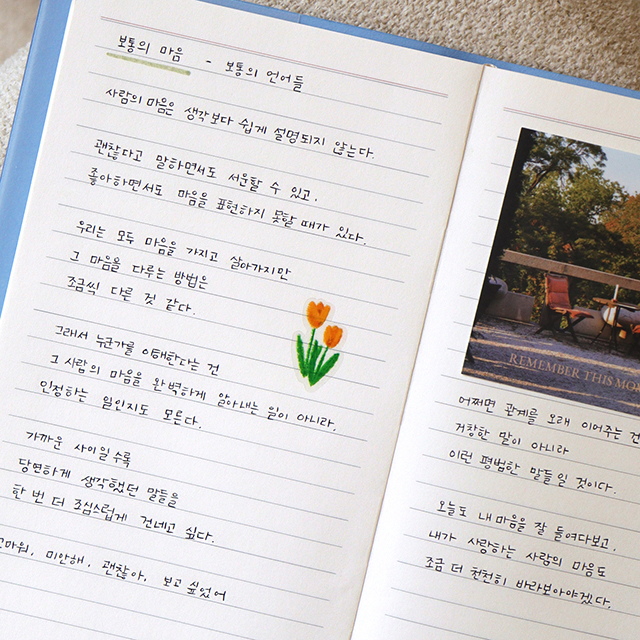 보통의 마음 - 보통의 언어들
사람의 마음은 생각보다 쉽게 설명되지 않는다.
괜찮다고 말하면서도 서운할 수 있고,
좋아하면서도 마음을 표현하지 못할 때가 있다.
우리는 모두 마음을 가지고 살아가지만
그 마음을 다루는 방법은
조금씩 다른 것 같다.
그래서 누군가를 이해한다는 건
그 사람의 마음을 완벽하게 알아내는 일이 아니라,
인정하는 일인지도 모른다.
가까운 사이일수록
당연하게 생각했던 말들을
한 번 더 조심스럽게 건네고 싶다.
고마워, 미안해, 괜찮아, 보고 싶었어
REMEMBER THIS
어쩌면 관계를 오래 이어주는 건
거창한 말이 아니라
이런 평범한 말들일 것이다.
오늘도 내 마음을 잘 들여다보고,
내가 사랑하는 사람의 마음도
조금 더 천천히 바라보아야겠다.